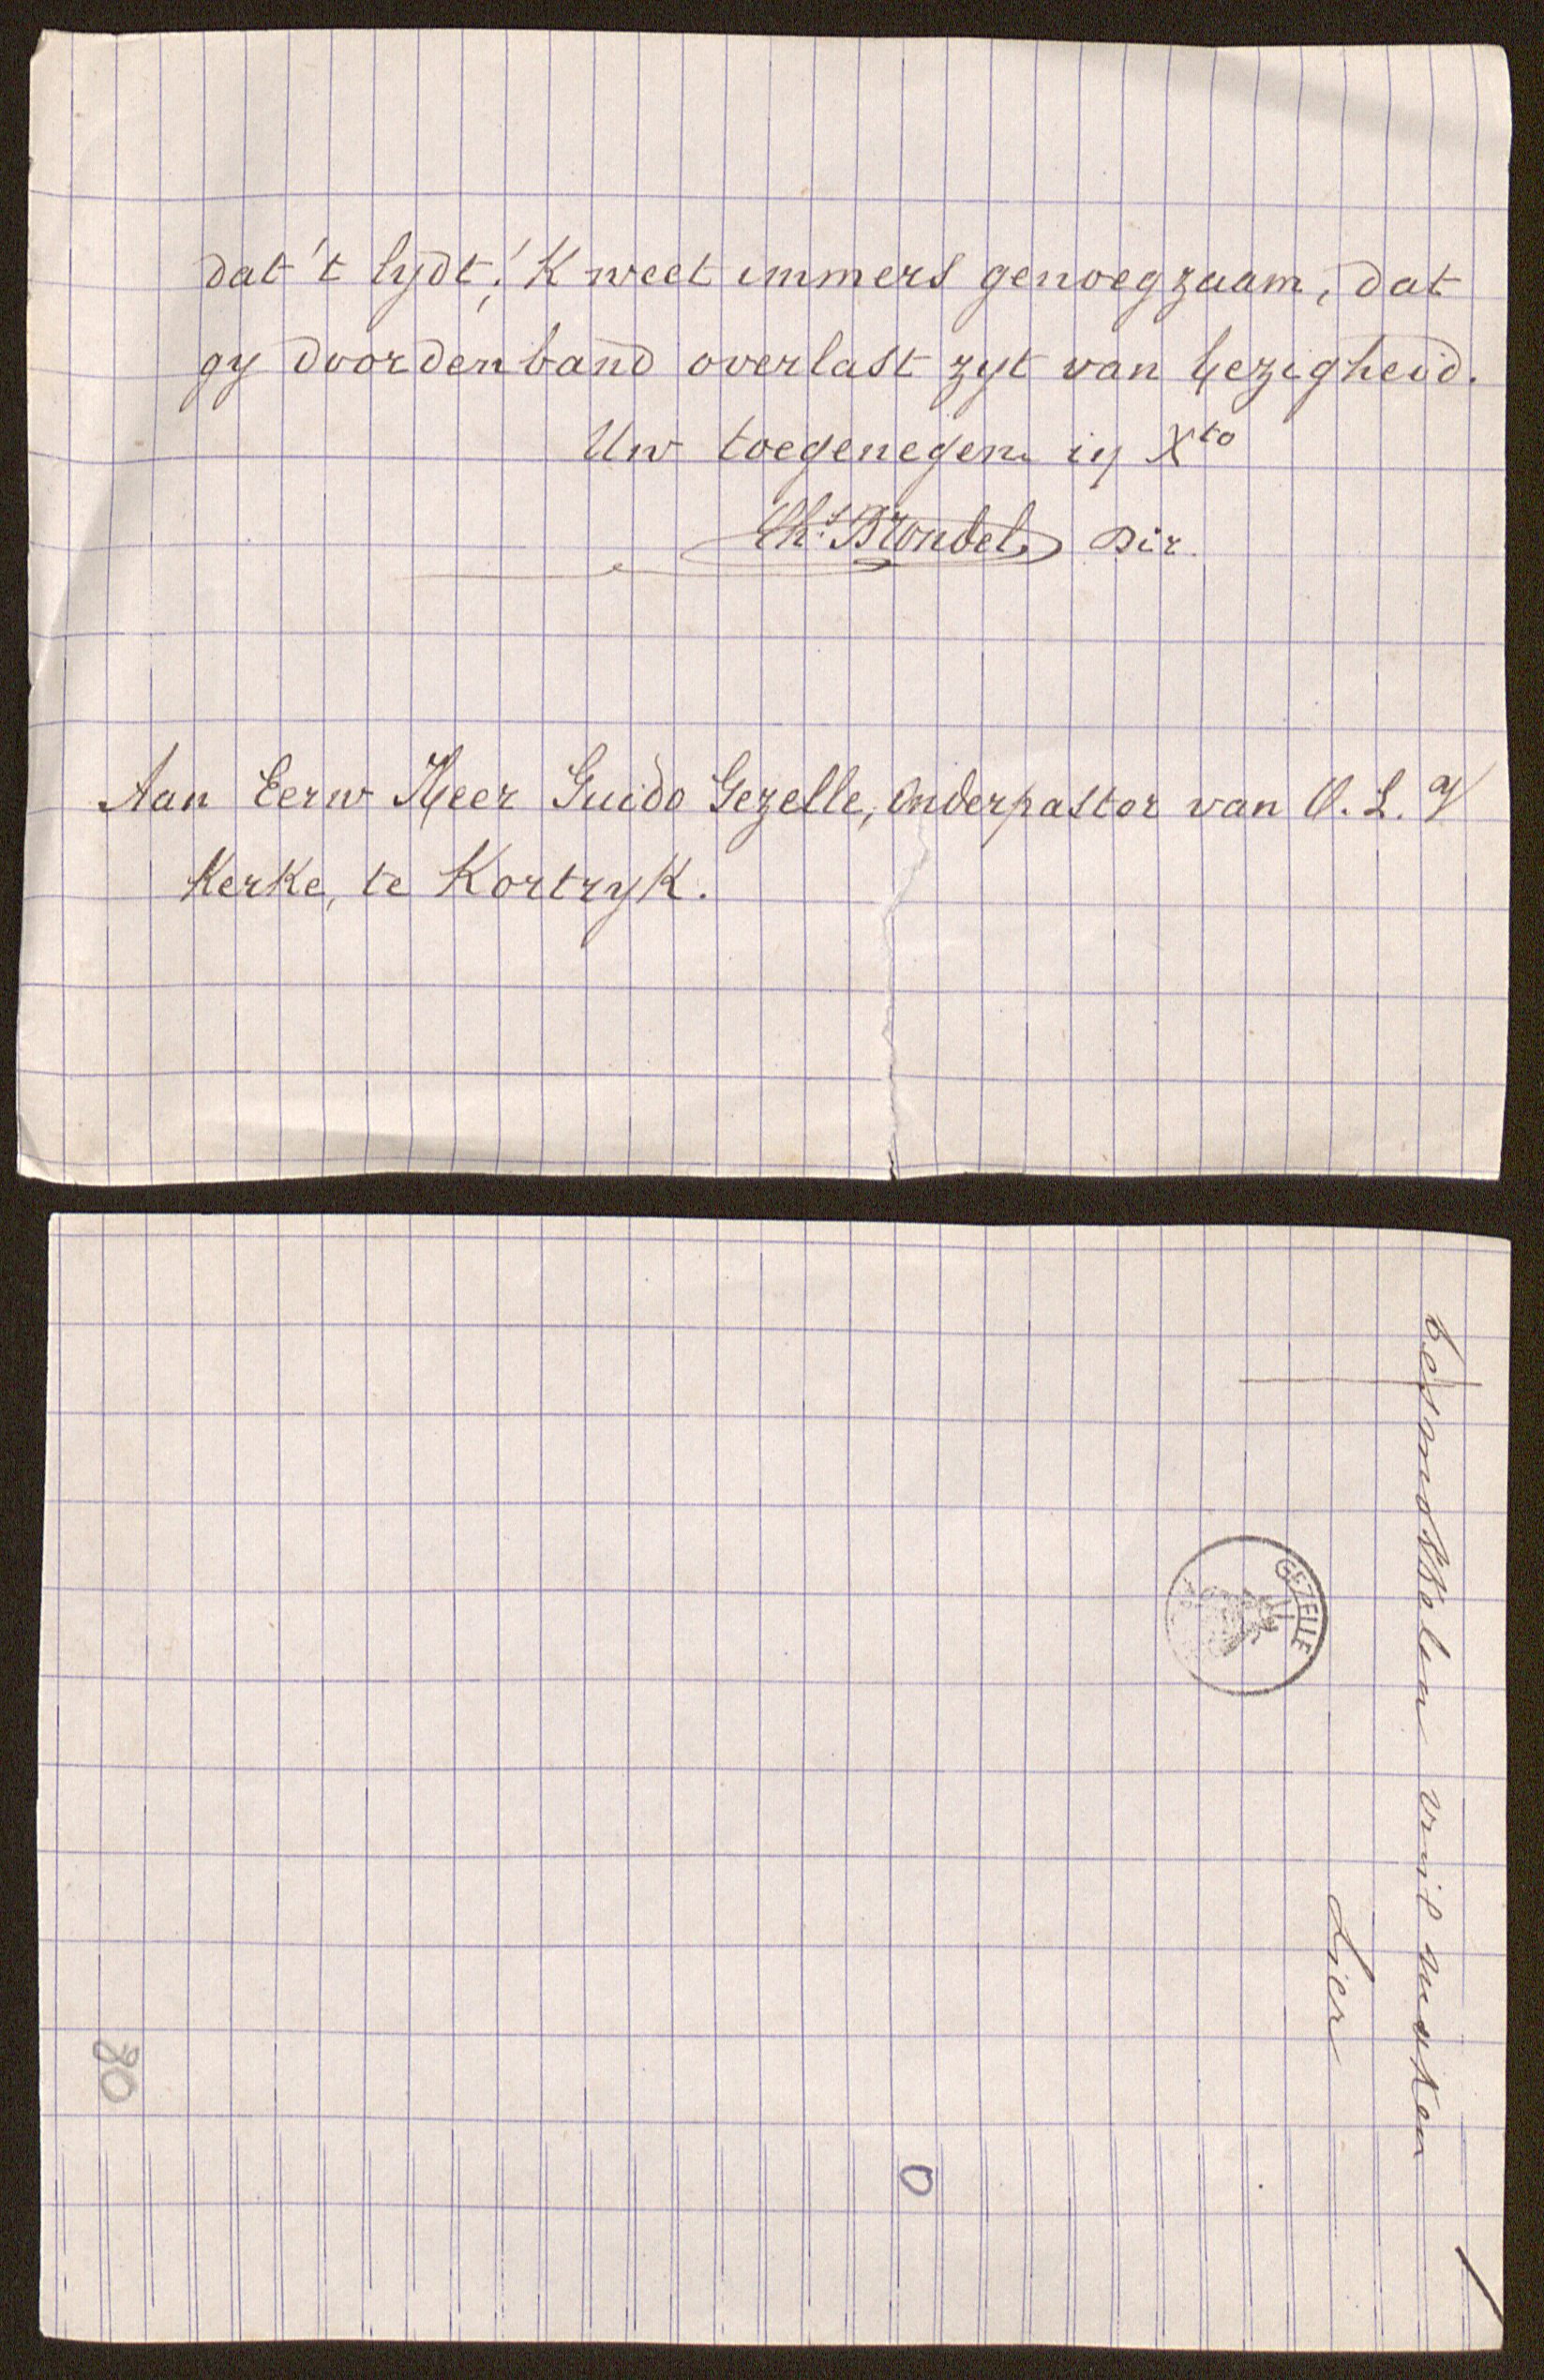 dat 't lydt; 'K weet immers genoegzaam, dat
gy doordenband overlast zyt van bezigheid.
Uw toegenegen in Xto
Ch.s Blondel Dir.
Aan Eerw Heer Guido Gezelle, Onderpastor van O. L. V
Kerke, te Kortryk.
besmodderen vuil maken
Lier
GEZELLE
80
0